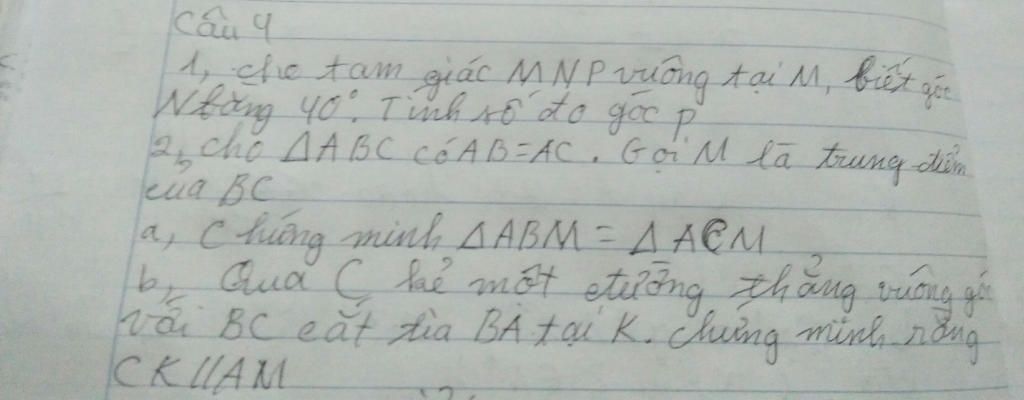 Câu 4
1, cho tam giác MNP vuông tại M, biết góc
N bằng 40°. Tính số đo góc P
2, cho ΔABC có AB=AC. Gọi M là trung điểm
của BC
a, Chứng minh ΔABM = ΔACM
b, Qua C kẻ một đường thẳng vuông gó
với BC cắt tia BA tại K. chứng minh rằng
CK//AM